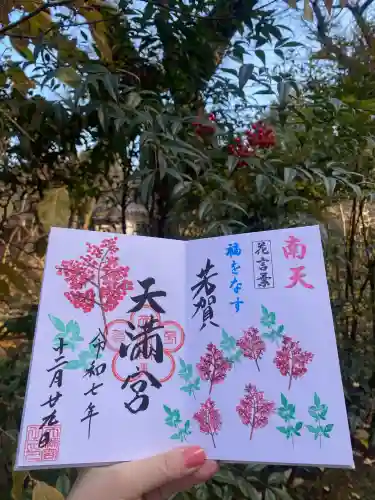 南天
花言葉
福をなす
芳賀
天満宮
令和七年
十二月廿九日